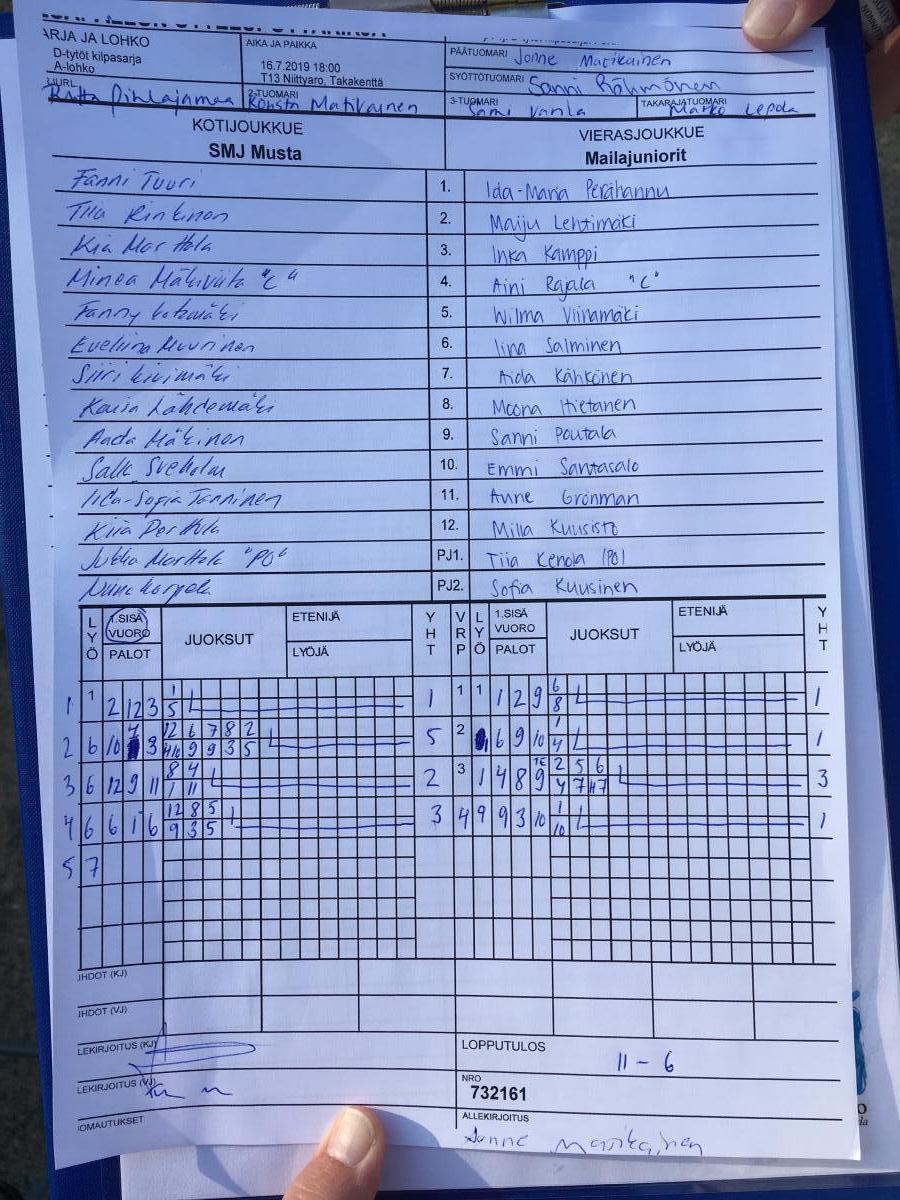 ARJA JA LOHKO
D-tytöt kilpasarja
A-lohko
AIKA JA PAIKKA
16.7.2019 18:00
T13 Niittyaro, Takakenttä
PÄÄTUOMARI Jonne Matikainen
SYÖTTÖTUOMARI Sanni Rähmönen
Riitta Pihlajamaa
2-TUOMARI Konsta Matikainen
3-TUOMARI Sami Vanla
TAKARAJATUOMARI Marko Lepola
KOTIJOUKKUE
SMJ Musta
VIERASJOUKKUE
Mailajuniorit
Fanni Tuuri 1. Ida-Maria Perähannu
Tiia Rinkinen 2. Maiju Lehtimäki
Kia Marttola 3. Inka Kamppi
Minea Mäkiviita "C" 4. Aini Rajala "C"
Fanny Kotamäki 5. Wilma Viinamäki
Eveliina Muurinen 6. Iina Salminen
Siiri Kivimäki 7. Aida Kähkönen
Kaisa Lähdemäki 8. Moona Hietanen
Aada Mäkinen 9. Sanni Poutala
Salla Sveholm 10. Emmi Santasalo
Iida-Sofia Tanninen 11. Anne Grönman
Kiia Perttola 12. Milla Kuusisto
Jukka Marttola "PJ" PJ1. Tiia Kenola (PJ)
Niina Korpela PJ2. Sofia Kuusinen
LYÖ 1.SISÄ VUORO PALOT JUOKSUT ETENIJÄ LYÖJÄ YHT VRP LYÖ 1.SISÄ VUORO PALOT JUOKSUT ETENIJÄ LYÖJÄ YHT
1 1 2 12 3 1 5 1 1 1 1 2 9 6 8 1
2 6 10 4 3 12 6 7 8 2 4 10 9 9 3 5 5 2 6 9 10 1 4 1
3 6 12 9 11 8 4 1 11 2 3 1 4 8 9 2 5 6 4 7 3
4 6 6 1 6 12 8 5 9 3 5 3 4 9 9 3 10 1 10 1
5 7
HDOT (KJ)
HDOT (VJ)
LEKIRJOITUS (KJ)
LOPPUTULOS
11 - 6
LEKIRJOITUS (VJ)
NRO
732161
OMAUTUKSET
ALLEKIRJOITUS
Jonne Matikainen